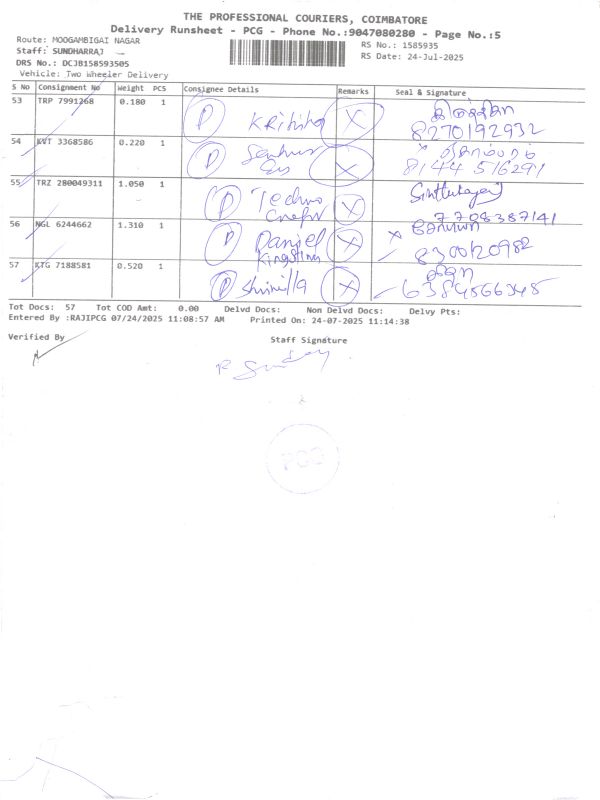 THE PROFESSIONAL COURIERS, COIMBATORE
Delivery Runsheet - PCG - Phone No.:9047080280 - Page No.:5
Route: MOOGAMBIGAI NAGAR
Staff: SUNDHARRAJ
RS No.: 1585935
RS Date: 24-Jul-2025
DRS No.: DCJB158593505
Vehicle: Two Wheeler Delivery
S No Consignment No Weight PCS Consignee Details Remarks Seal & Signature
53 TRP 7991268 0.180 1 D X
8270192932
54 KVT 3368586 0.220 1 D X
8144 516291
55 TRZ 280049311 1.050 1 D Techno X
7708387141
56 NGL 6244662 1.310 1 D Daniel X X
Kingston 8300120982
57 KTG 7188581 0.520 1 D X
6384866348
Tot Docs: 57 Tot COD Amt: 0.00 Delvd Docs: Non Delvd Docs: Delvy Pts:
Entered By :RAJIPCG 07/24/2025 11:08:57 AM Printed On: 24-07-2025 11:14:38
Verified By
Staff Signature
PCG